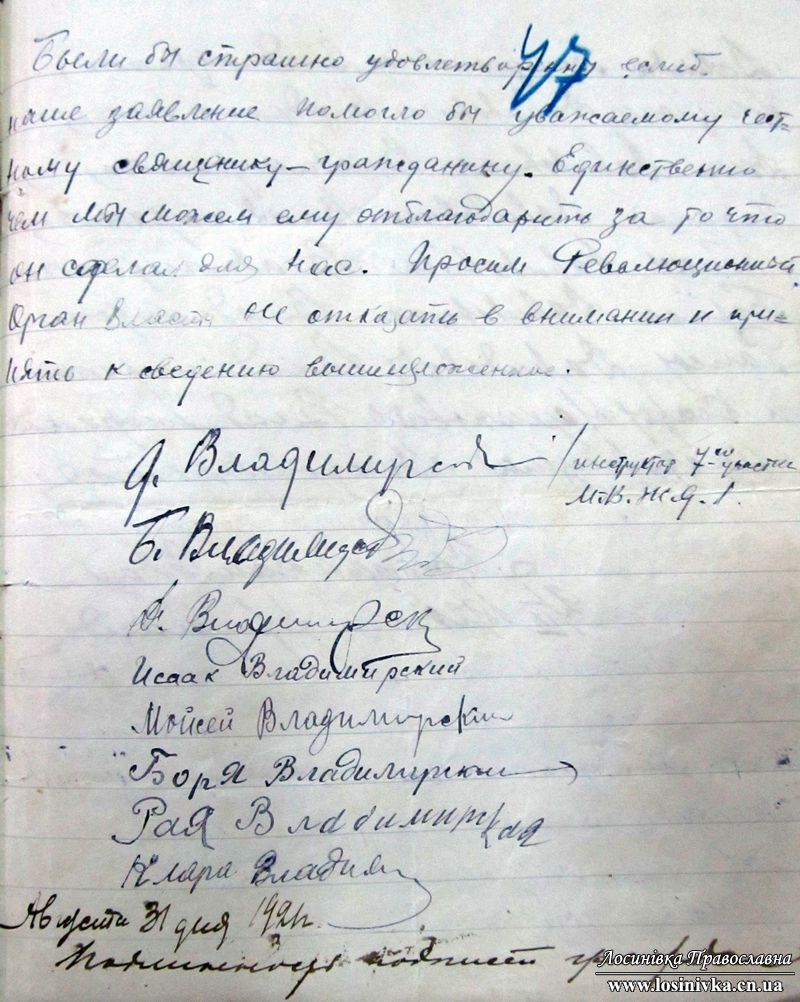 47
Были бы страшно удовлетворены если б
наше заявление помогло бы уважаемому чест-
ному священику-гражданину. Единственно
чем мы можем ему отблагодарить за то что
он сделал для нас. Просим Революционный
Орган Власти не отказать в внимании и при-
нять к сведению вышеизложенное.
Владимирский /инструктор 7-го участка
М.-К.-В.ж.д./.
Б. Владимирс
Владимирск
Исаак Владимирский
Мойсей Владимирский
Боря Владимирский
Рая Владимирская
Клара Владим
Августа 31 дня 1921 г.
Подлинность подписей граждан
Лосинівка Православна
www.losinivka.cn.ua